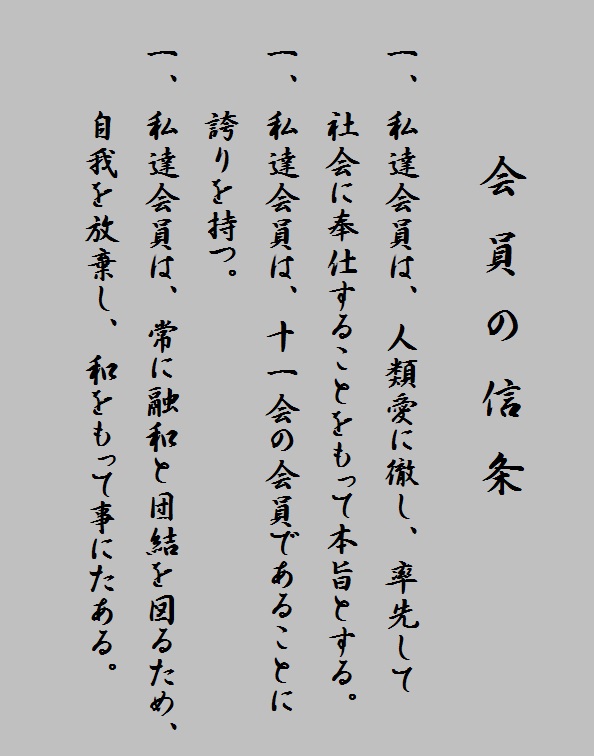 会員の信条
一、私達会員は、人類愛に徹し、率先して
社会に奉仕することをもって本旨とする。
一、私達会員は、十一会の会員であることに
誇りを持つ。
一、私達会員は、常に融和と団結を図るため、
自我を放棄し、和をもって事にたある。